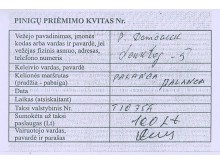 PINIGŲ PRIĖMIMO KVITAS Nr.
Vežėjo pavadinimas, įmonės
kodas arba vardas ir pavardė, jei
vežėjas fizinis asmuo, adresas,
telefono numeris
P.
Keleivio vardas, pavardė
Kelionės maršrutas
(pradžia - pabaiga)
PALANGA
PALANGA
Data
Laikas (atsiskaitant)
Taksi valstybinis Nr.
T10754
Sumokėta už taksi
paslaugas (Lt)
100 Lt
Vairuotojo vardas,
pavardė, parašas